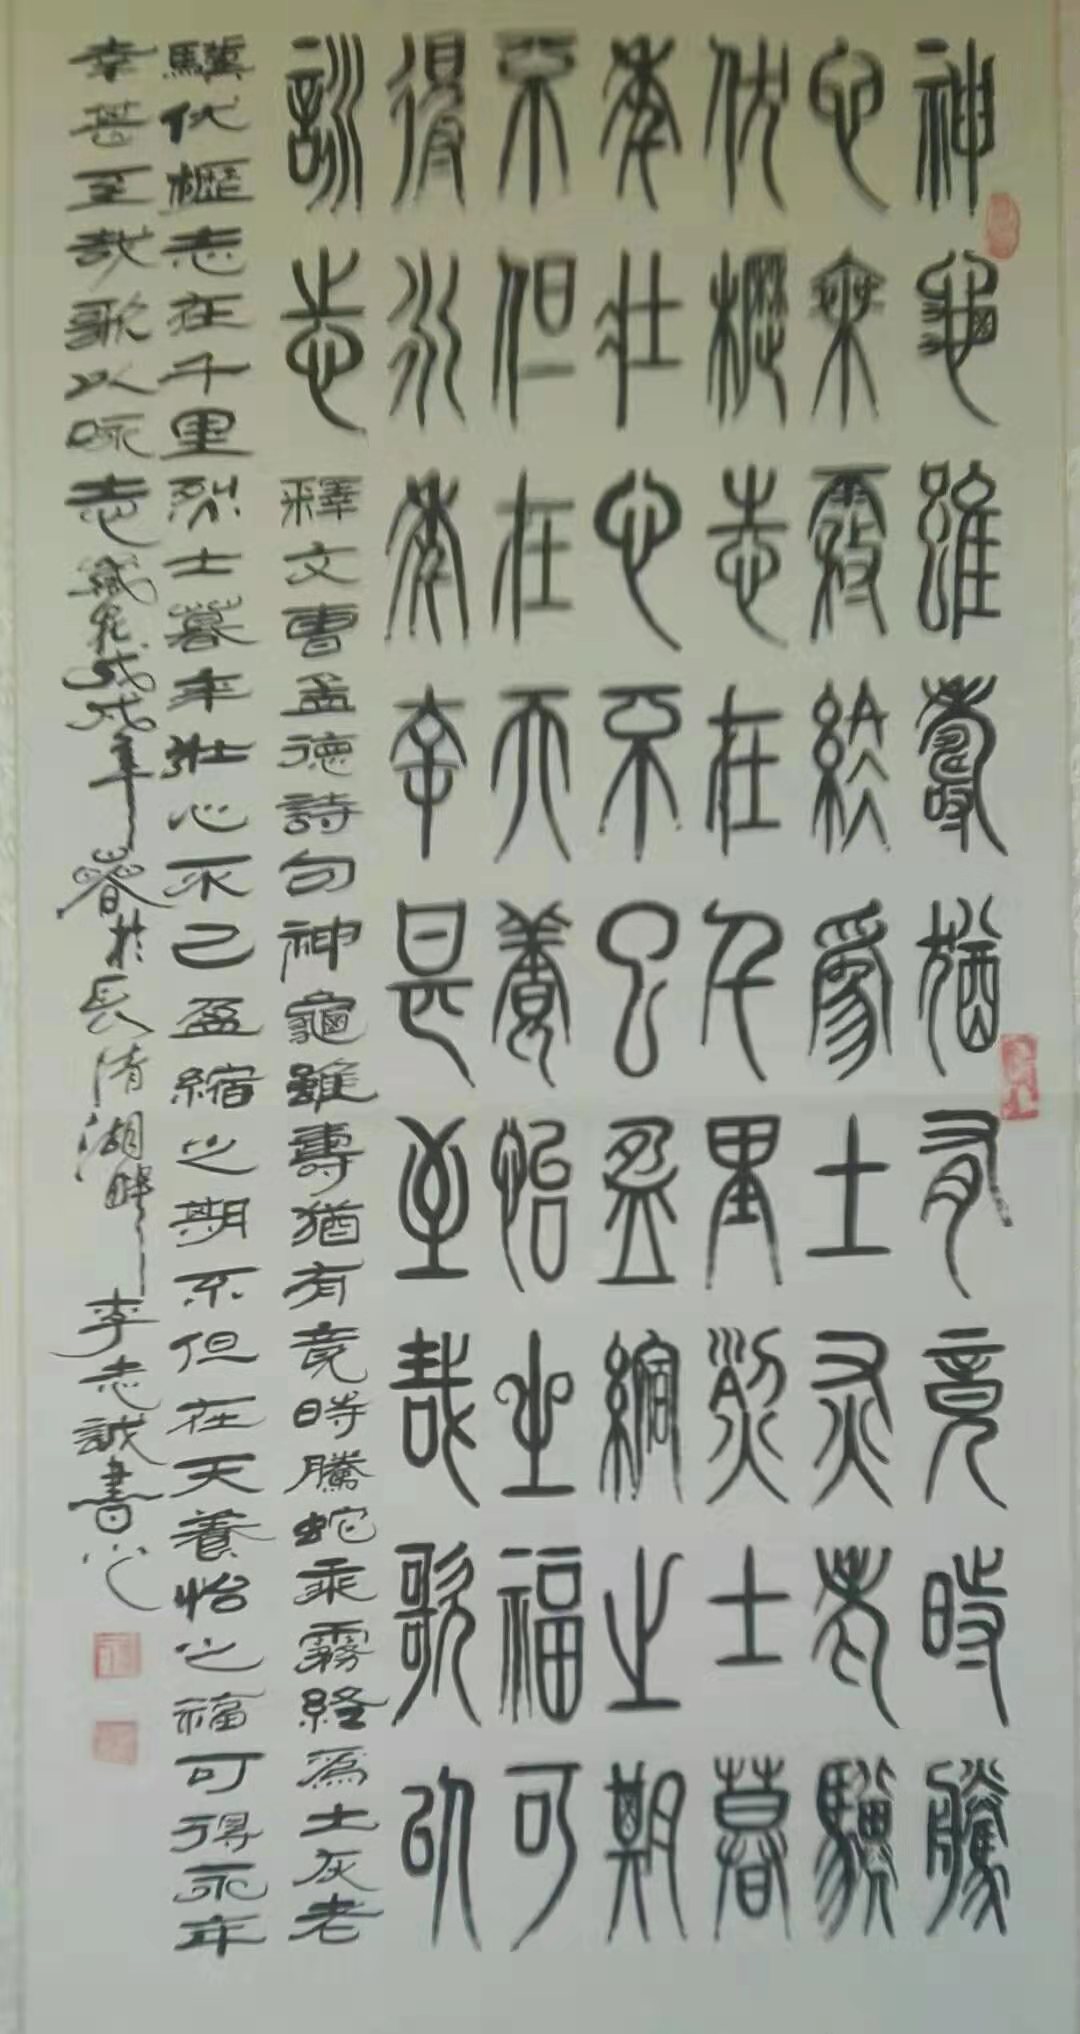 神龜雖壽猶有竟時騰
它乘霧終爲土灰老驥
伏櫪志在千里烈士暮
年壯心不已盈縮之期
不但在天養怡之福可
得永年幸甚至哉歌以
詠志
釋文曹孟德詩句神龜雖壽猶有竟時騰蛇乘霧終爲土灰老
驥伏櫪志在千里烈士暮年壯心不已盈縮之期不但在天養怡之福可得永年
幸甚至哉歌以咏志歲在戊戌年春於長清湖畔李志誠書